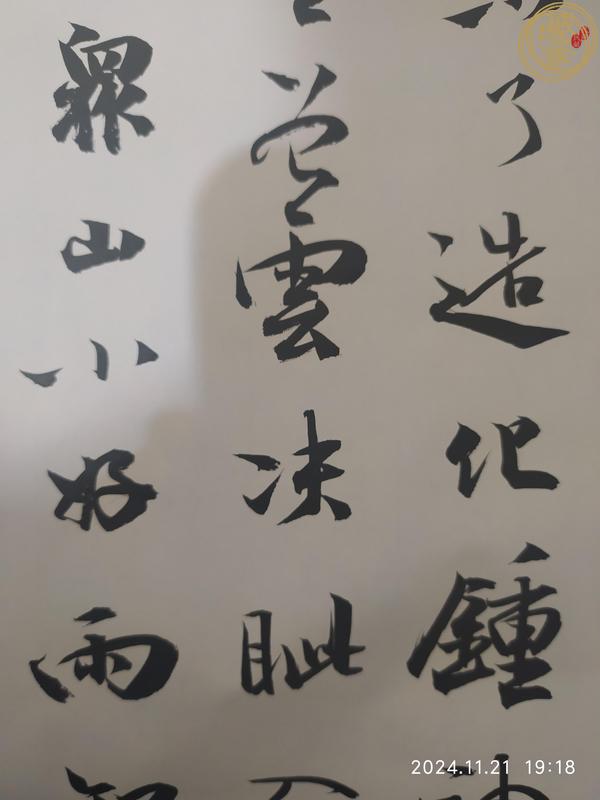 了造化鍾
曾雲决眦
眾山小好雨
2024.11.21 19:18